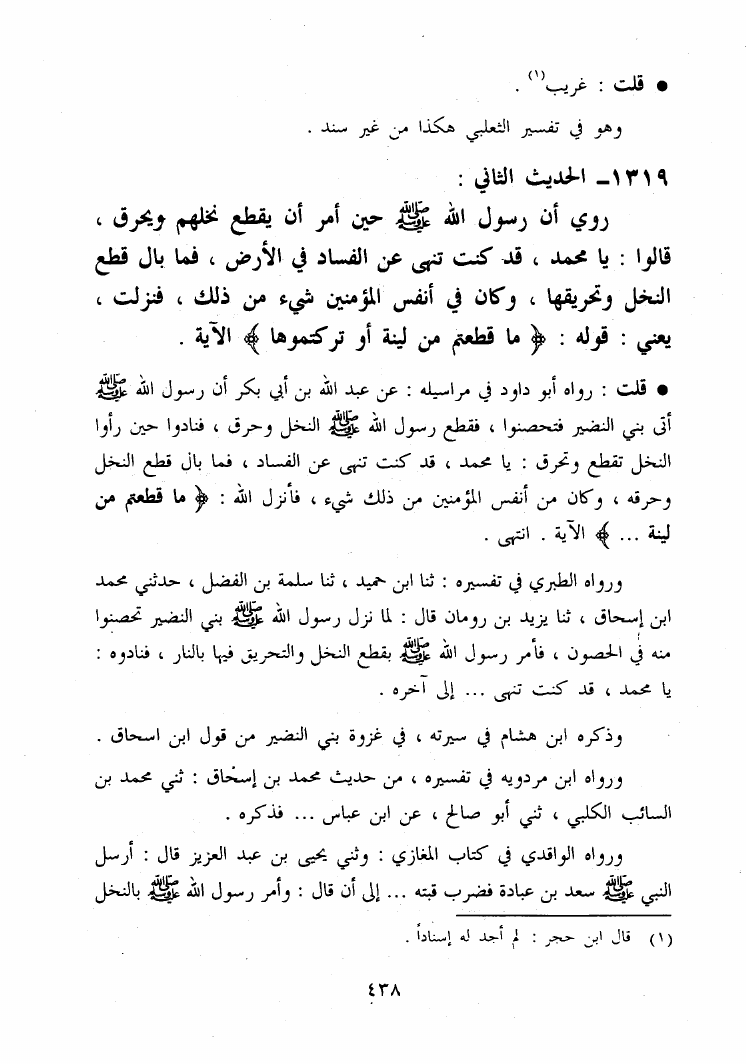 ● قلت : غريب(١) .
وهو في تفسير الثعلبي هكذا من غير سند .
١٣١٩ـ الحديث الثاني :
روي أن رسول الله ﷺ حين أمر أن يقطع نخلهم ويحرق ،
قالوا : يا محمد ، قد كنت تنهى عن الفساد في الأرض ، فما بال قطع
النخل وتحريقها ، وكان في أنفس المؤمنين شيء من ذلك ، فنزلت ،
يعني : قوله : ﴿ ما قطعتم من لينة أو تركتموها ﴾ الآية .
● قلت : رواه أبو داود في مراسيله : عن عبد الله بن أبي بكر أن رسول الله ﷺ
أتى بني النضير فتحصنوا ، فقطع رسول الله ﷺ النخل وحرق ، فنادوا حين رأوا
النخل تقطع وتحرق : يا محمد ، قد كنت تنهى عن الفساد ، فما بال قطع النخل
وحرقه ، وكان من أنفس المؤمنين من ذلك شيء ، فأنزل الله : ﴿ ما قطعتم من
لينة ... ﴾ الآية . انتهى .
ورواه الطبري في تفسيره : ثنا ابن حميد ، ثنا سلمة بن الفضل ، حدثني محمد
ابن إسحاق ، ثنا يزيد بن رومان قال : لما نزل رسول الله ﷺ بني النضير تحصنوا
منه في الحصون ، فأمر رسول الله ﷺ بقطع النخل والتحريق فيها بالنار ، فنادوه :
يا محمد ، قد كنت تنهى ... إلى آخره .
وذكره ابن هشام في سيرته ، في غزوة بني النضير من قول ابن اسحاق .
ورواه ابن مردويه في تفسيره ، من حديث محمد بن إسحاق : ثني محمد بن
السائب الكلبي ، ثني أبو صالح ، عن ابن عباس ... فذكره .
ورواه الواقدي في كتاب المغازي : وثني يحيى بن عبد العزيز قال : أرسل
النبي ﷺ سعد بن عبادة فضرب قبته ... إلى أن قال : وأمر رسول الله ﷺ بالنخل
(١) قال ابن حجر : لم أجد له إسناداً .
٤٣٨